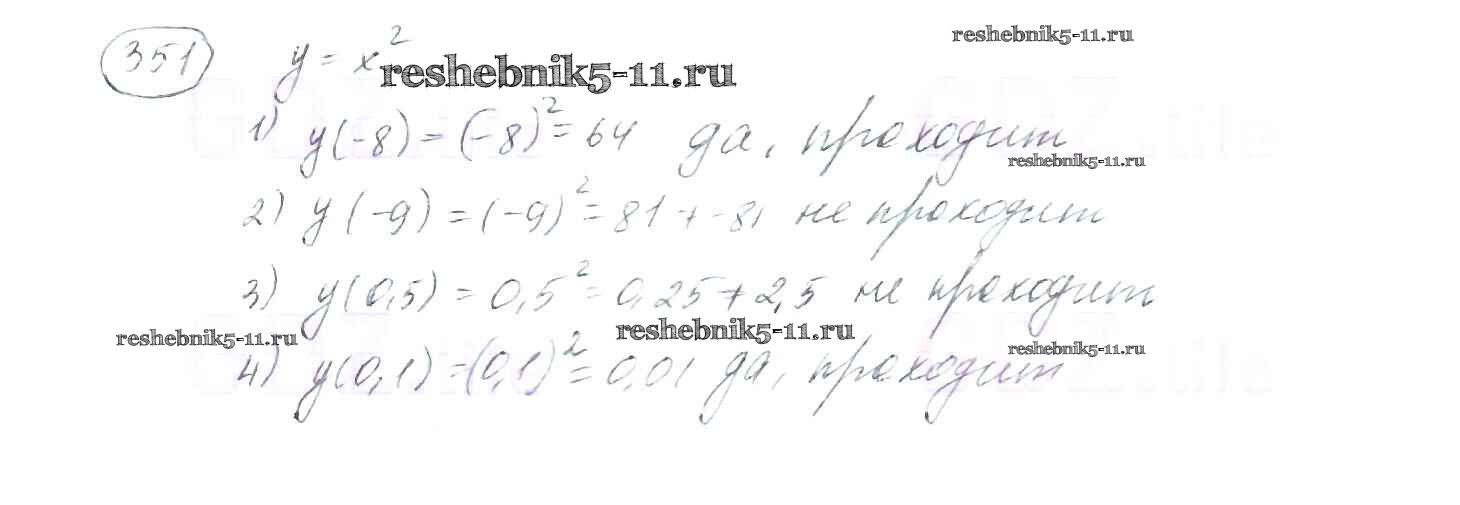 351 y = x²
reshebnik5-11.ru
reshebnik5-11.ru
1) y(-8) = (-8)² = 64 да, проходит
reshebnik5-11.ru
2) y(-9) = (-9)² = 81 ≠ -81 не проходит
3) y(0,5) = 0,5² = 0,25 ≠ 2,5 не проходит
reshebnik5-11.ru
reshebnik5-11.ru
reshebnik5-11.ru
4) y(0,1) = (0,1)² = 0,01 да, проходит